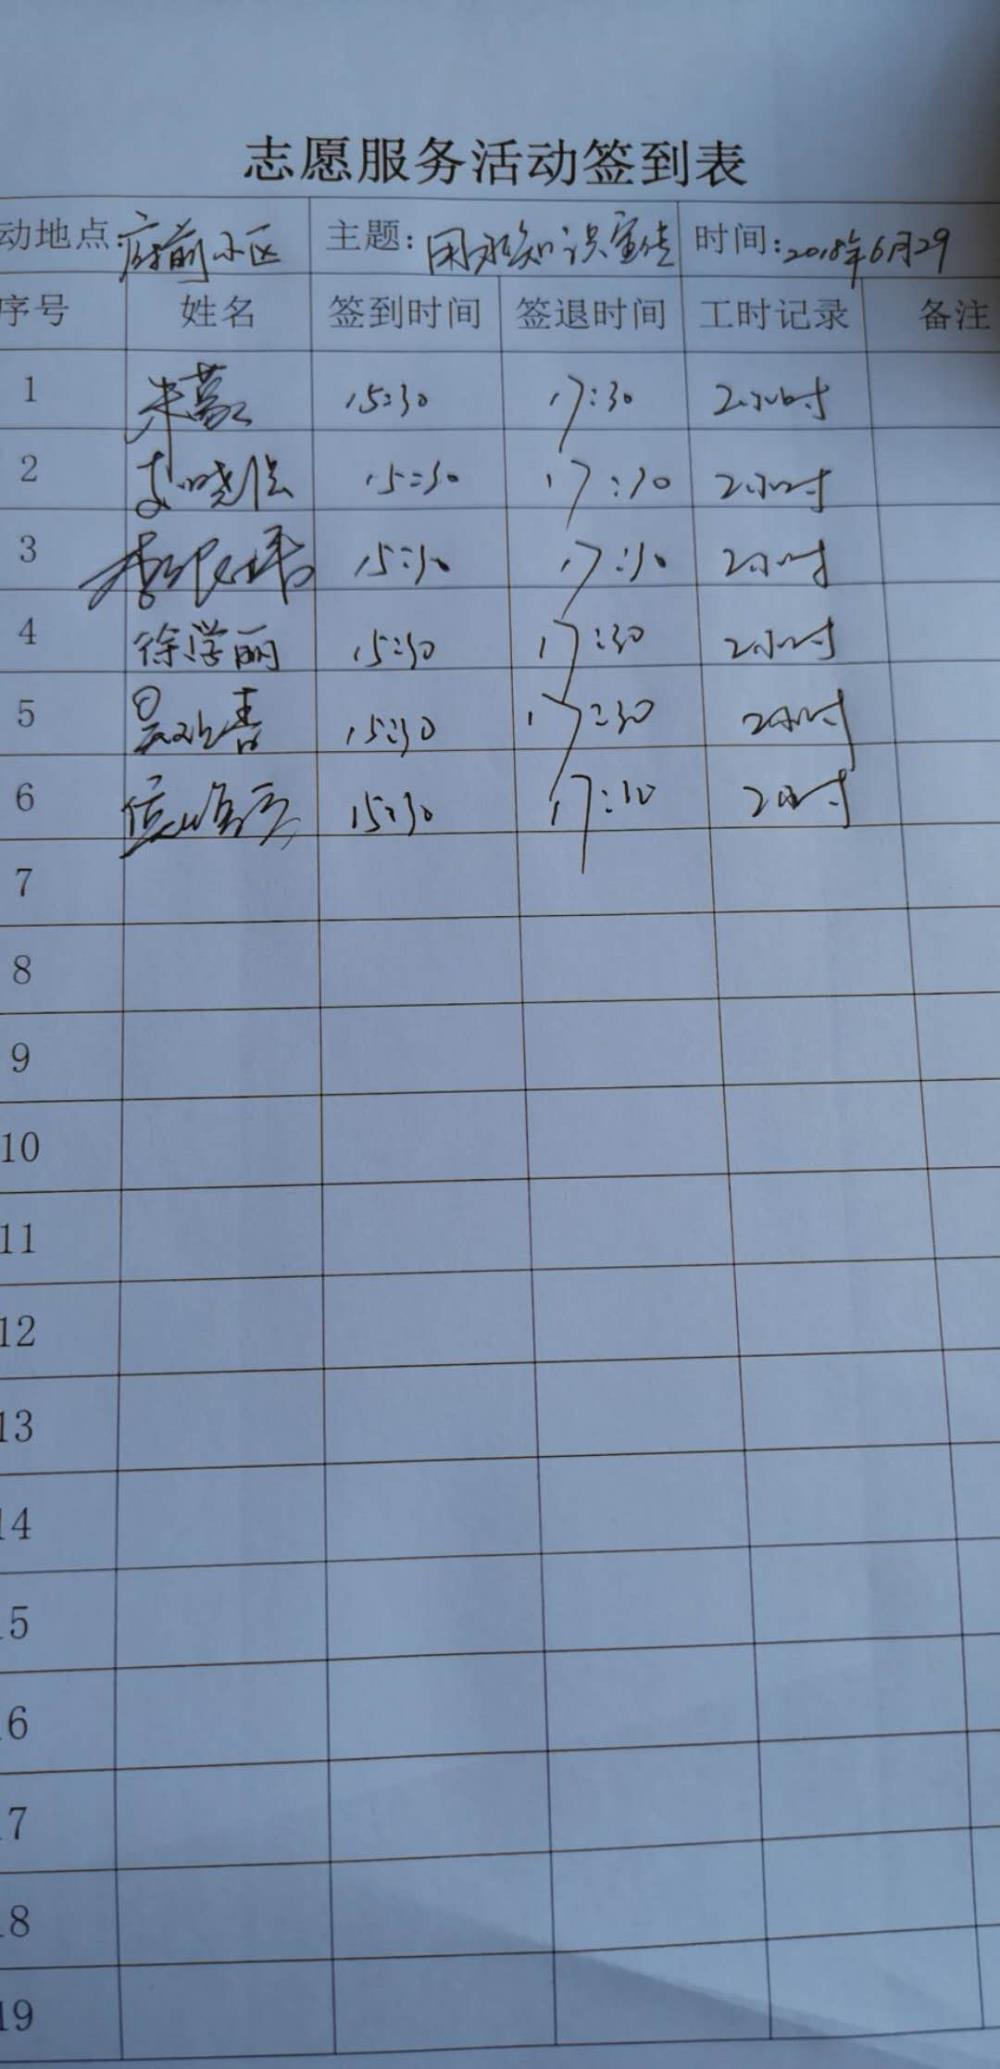 志愿服务活动签到表
动地点 府前小区 主题: 用水知识宣传 时间: 2018年6月29
序号 姓名 签到时间 签退时间 工时记录 备注
1 朱 15:30 17:30 2小时
2 晓 15:30 17:30 2小时
3 李 15:30 17:30 2小时
4 徐学丽 15:30 17:30 2小时
5 吴 15:30 17:30 2小时
6 15:30 17:30 2小时
7
8
9
10
11
12
13
14
15
16
17
18
19